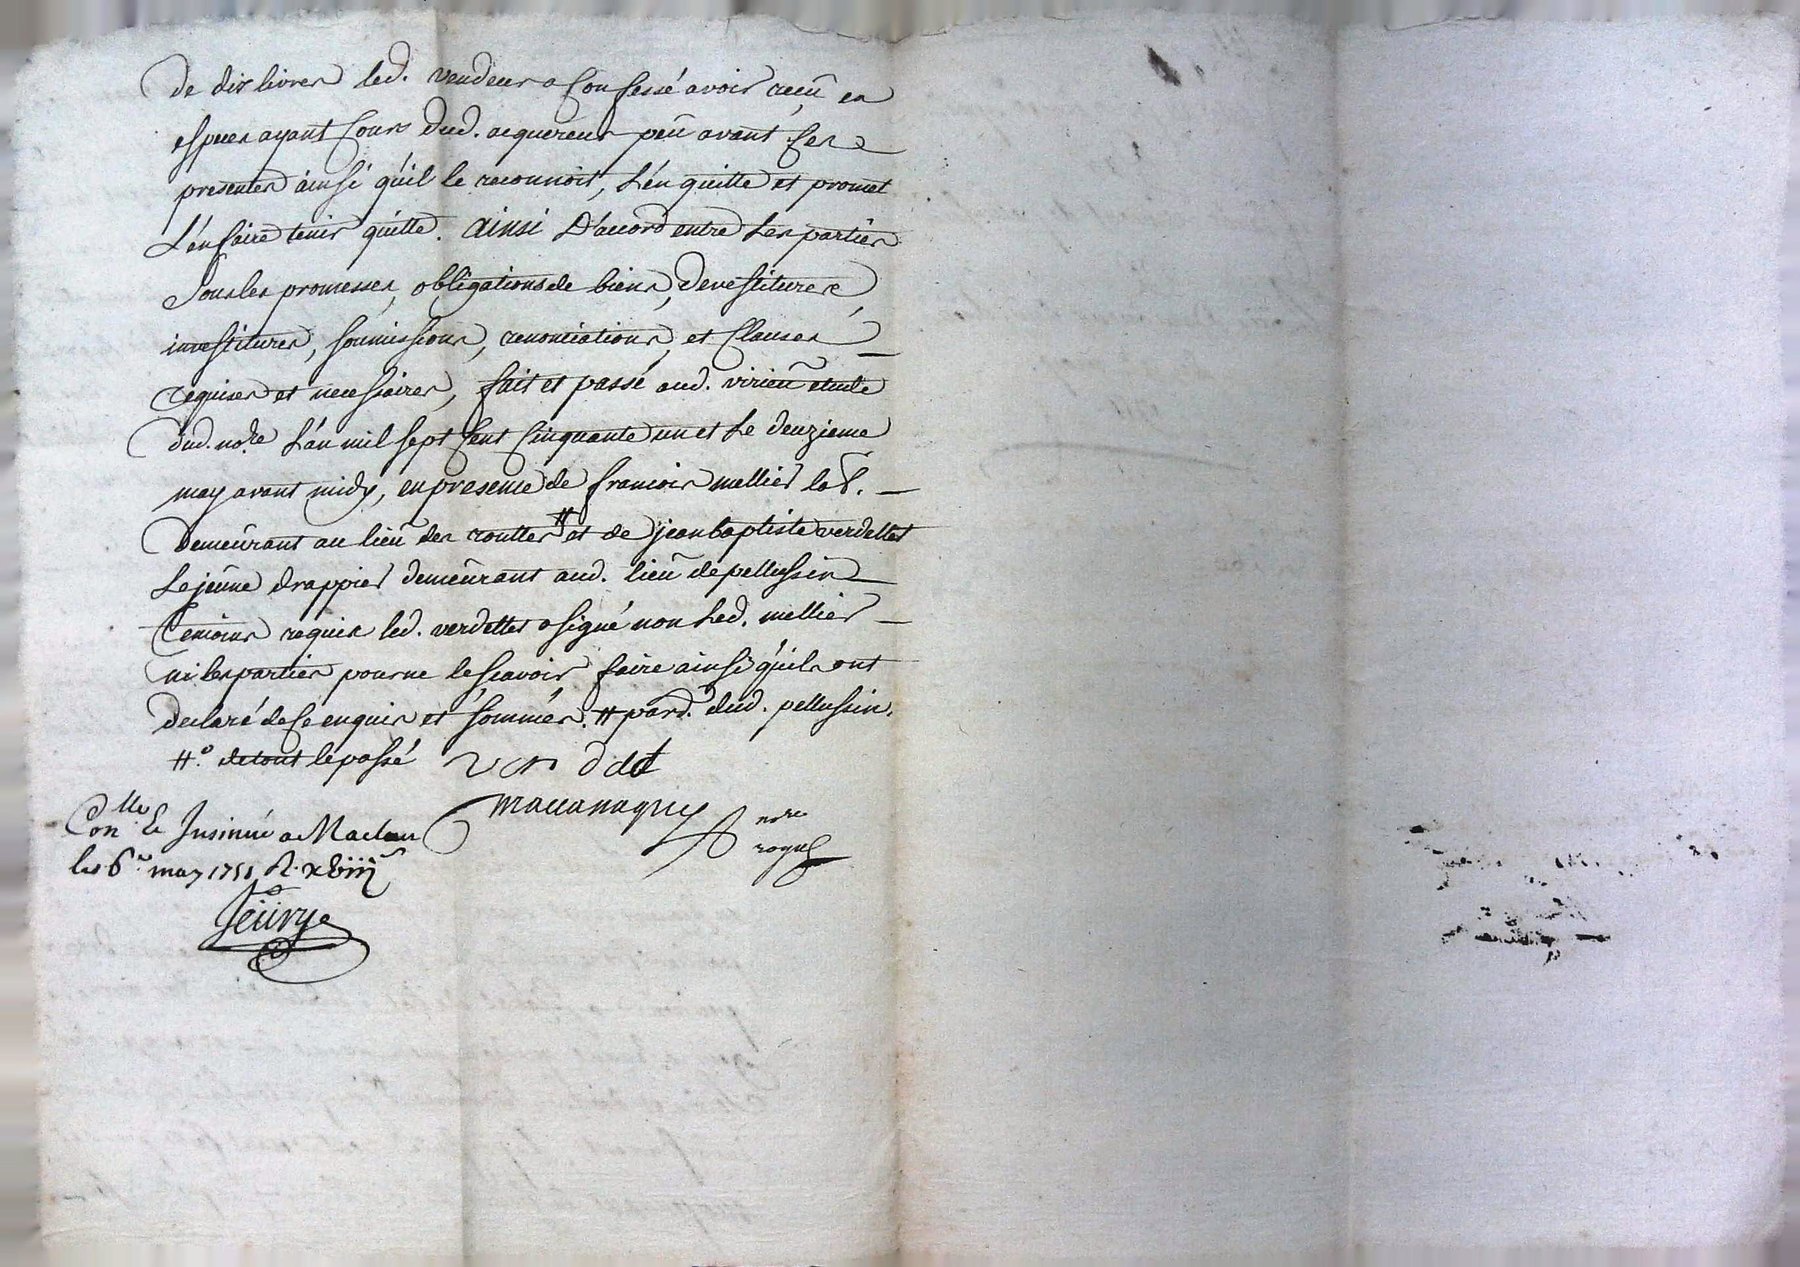 de dix livres led. vendeur a confessé avoir receu en
especes ayant cours dud. acquereur peu avant ces
presentes ainsi qu'il le reconnoit, L'en quitte et promet
L'en faire tenir quitte. ainsi D'accord entre Les parties
Sous les promesses, obligations de biens, devestitures,
investitures, soumissions, renonciations, et Clauses
requises et necessaires, fait et passé aud. virieu etude
dud. no.re L'an mil sept cent cinquante un et Le deuzieme
may avant midy, en presence de francois mellier lab.
demeurant au lieu des routtes # et de jean baptiste verdellet
Le jeune drappier demeurant aud. lieu de pellussin
temoins requis led. verdellet a signé non Led. mellier
ni les parties pour ne le scavoir faire ainsi qu'ils ont
declaré de ce enquis et sommés. # par.d. dud. pellussin.
#.o de tout le passé
mauanaguy
no.re
roy.l
Con.lle & Insinué a Maclau
le 6.e may 1751 R. xviii